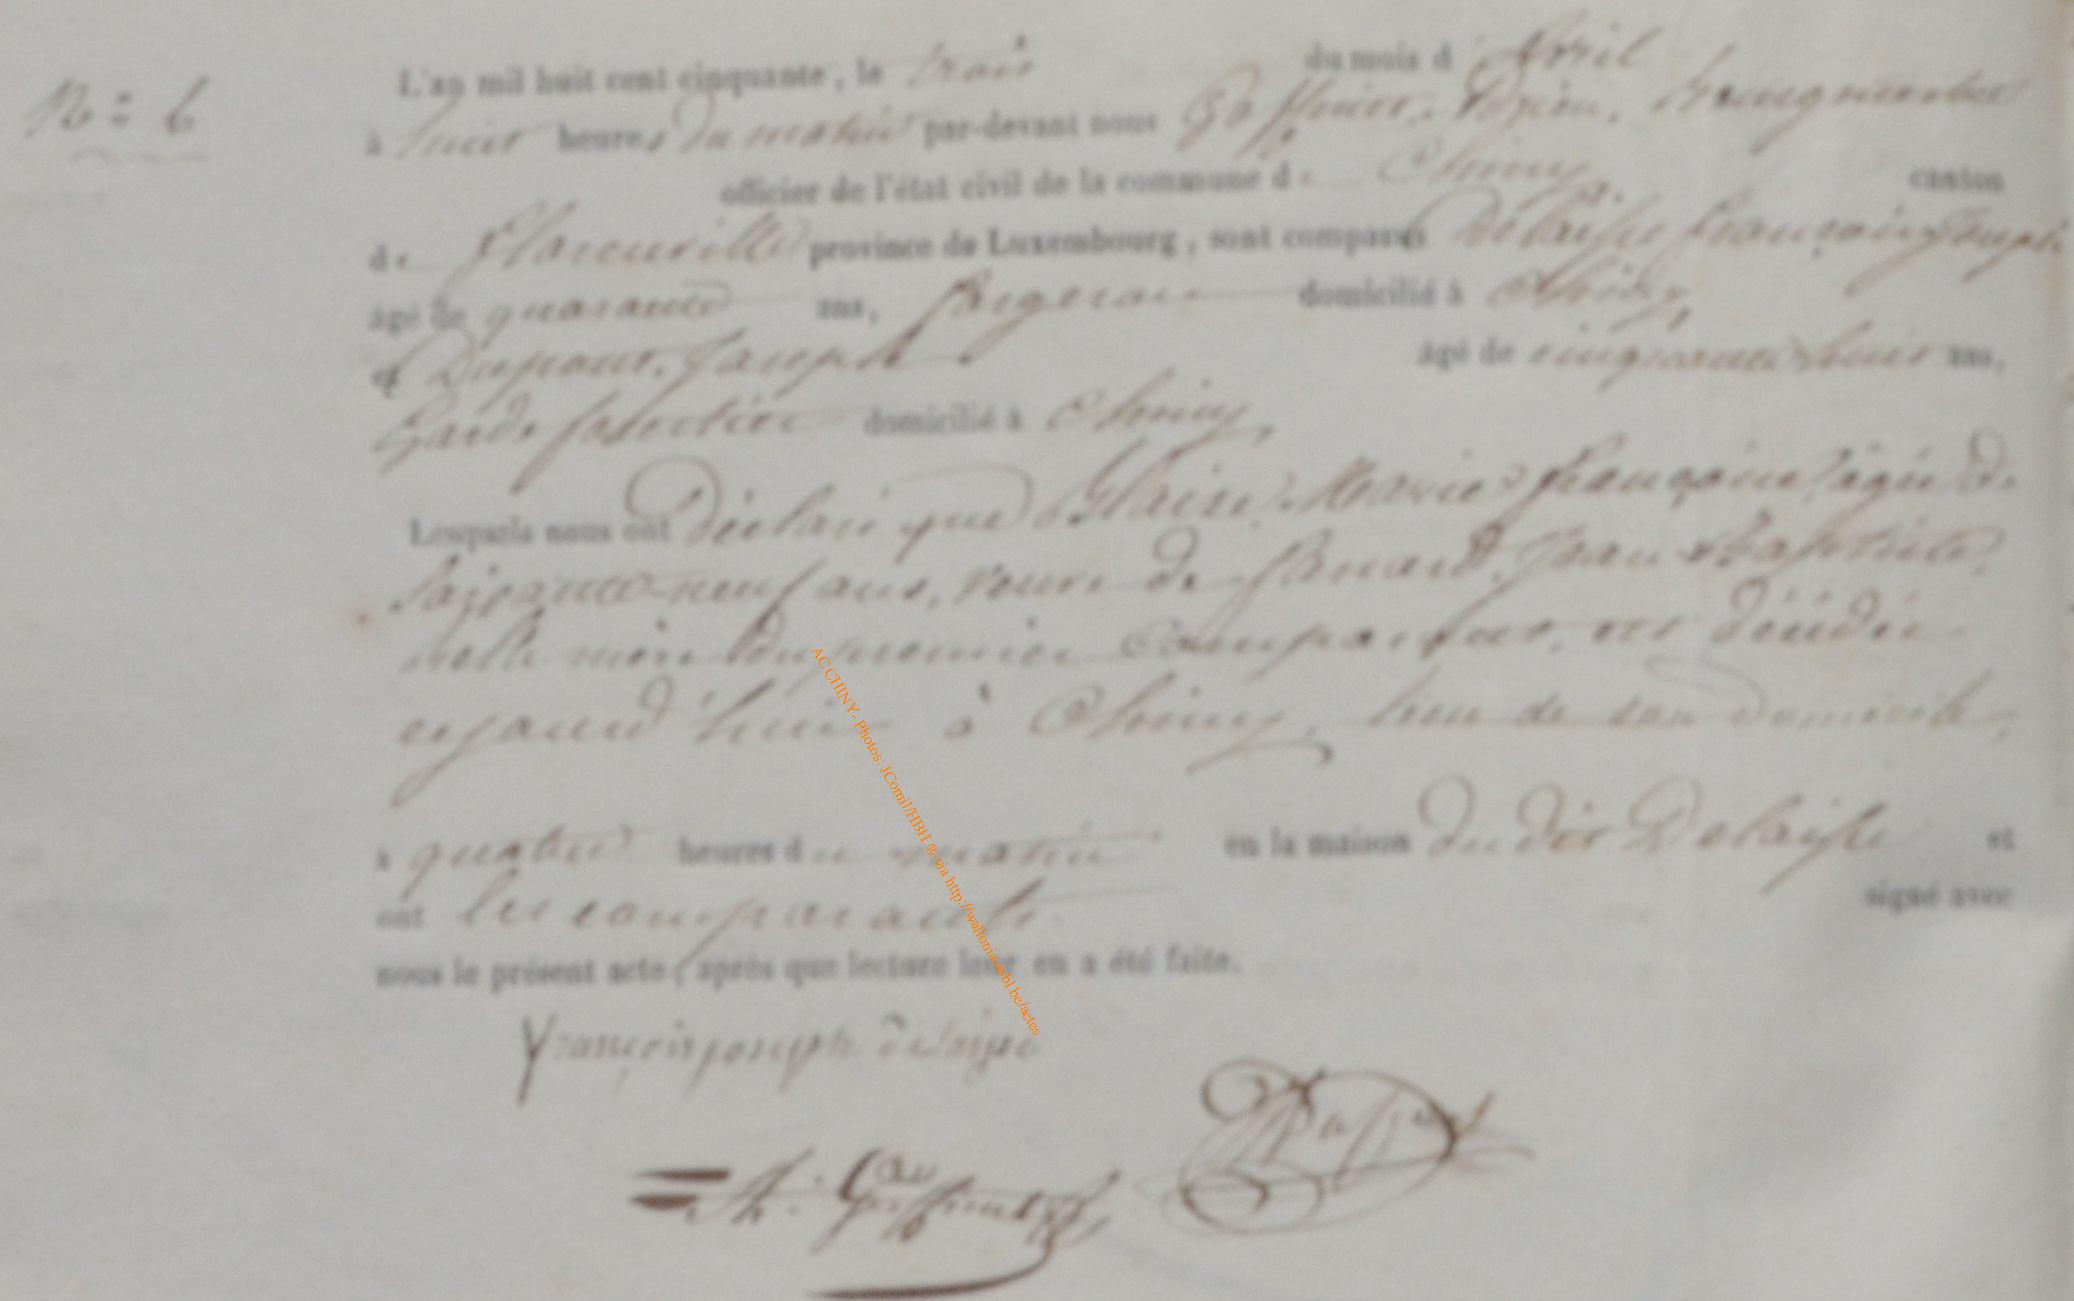 N° 6
L'an mil huit cent cinquante, le trois du mois d'Avril
à huit heures du matin par-devant nous bourgmestre
officier de l'état civil de la commune de Chiny canton
de Florenville province de Luxembourg, sont comparus Delaisse François Joseph
âgé de quarante ans, forgeron domicilié à Chiny,
et Dupont, Joseph âgé de cinquante huit ans,
Garde forestier domicilié à Chiny,
Lesquels nous ont déclaré que Marie Françoise, âgée de
soixante-neuf ans, veuve de Jean Baptiste,
belle mère du premier comparant, est décédée
aujourd'hui à Chiny, lieu de son domicile,
à quatre heures du matin en la maison du dit Delaisse et
ont les comparants signé avec
nous le présent acte, après que lecture leur en a été faite.
François joseph delaisse
ACCHINY- Photos: JCornil/HBH ® via http://wallonia-asbl.be/actes